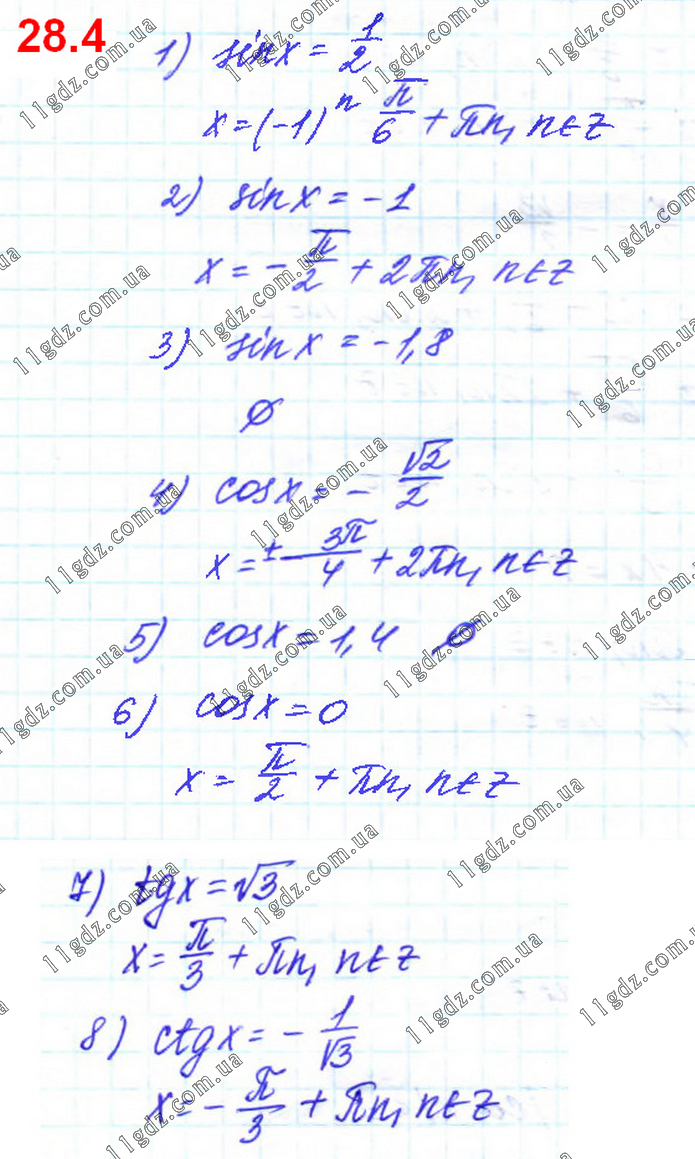 28.4
1) sinx = 1/2
x = (-1)^n π/6 + πn, n∈Z
2) sinx = -1
x = -π/2 + 2πn, n∈Z
3) sinx = -1,8
∅
4) cosx = -√2/2
x = ± 3π/4 + 2πn, n∈Z
5) cosx = 1,4 ∅
6) cosx = 0
x = π/2 + πn, n∈Z
7) tgx = √3
x = π/3 + πn, n∈Z
8) ctgx = -1/√3
x = -π/3 + πn, n∈Z
11gdz.com.ua